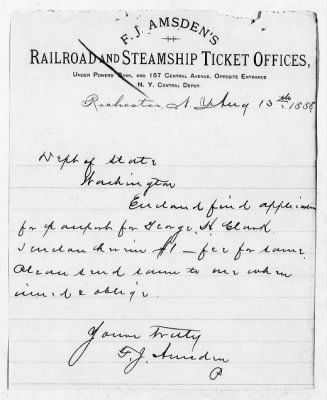 F. J. AMSDEN'S
RAILROAD AND STEAMSHIP TICKET OFFICES,
UNDER POWERS' BANK, AND 167 CENTRAL AVENUE, OPPOSITE ENTRANCE
N. Y. CENTRAL DEPOT.
Rochester, N. Y. Aug 13th 188
Dept of State
Washington
Enclosed find application
for passport for George H. Clark
I enclose herein $1 - fee for same
Please send same to me when
issued & oblige
Yours truly
F. J. Amsden
P